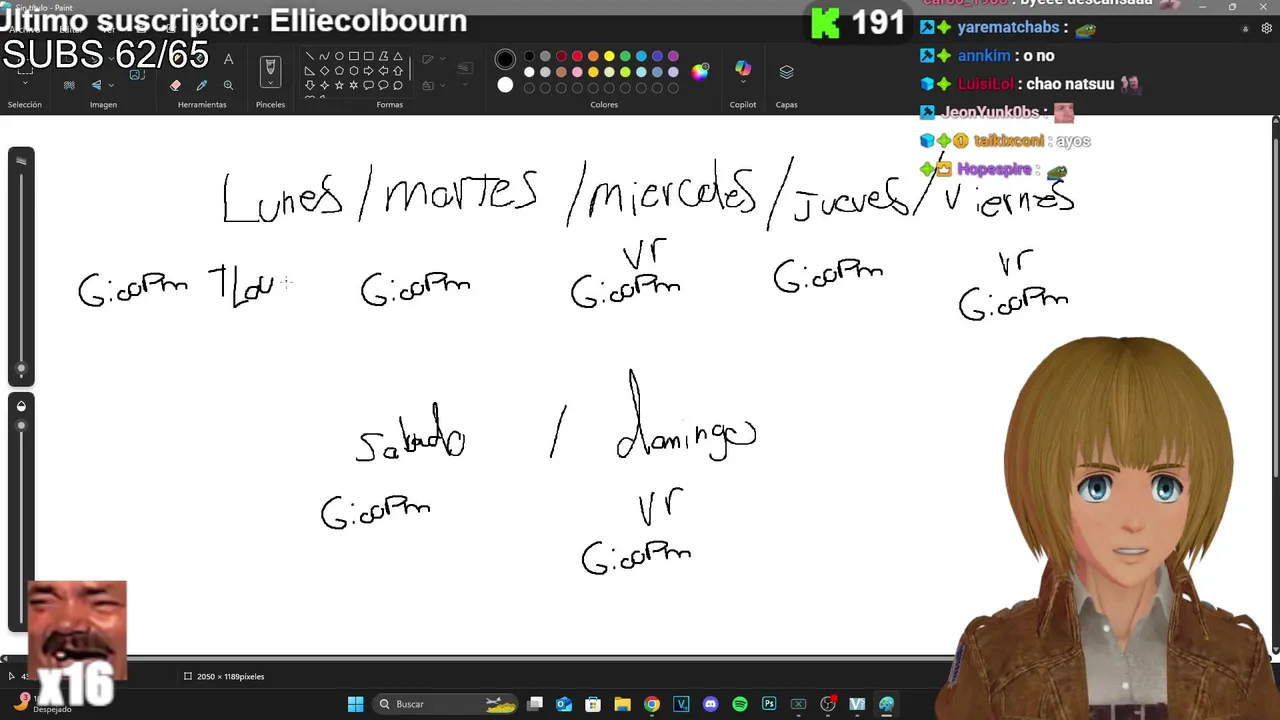 Sin título - Paint
Último suscriptor: Elliecolbourn
SUBS 62/65
K 191
byeee descansaaa
yarematchabs :
annkim : o no
LuisiLol : chao natsuu
JeonYunk0bs :
taikixconi : ayos
Hopespire :
Selección
Imagen
Herramientas
Pinceles
Formas
Colores
Copilot
Capas
Lunes / martes / miercoles / jueves / viernes
vr
vr
6:00Pm TLou
6:00Pm
6:00Pm
6:00Pm
6:00Pm
sabado / domingo
6:00Pm
vr
6:00Pm
x16
2050 × 1189píxeles
Despejado
Buscar